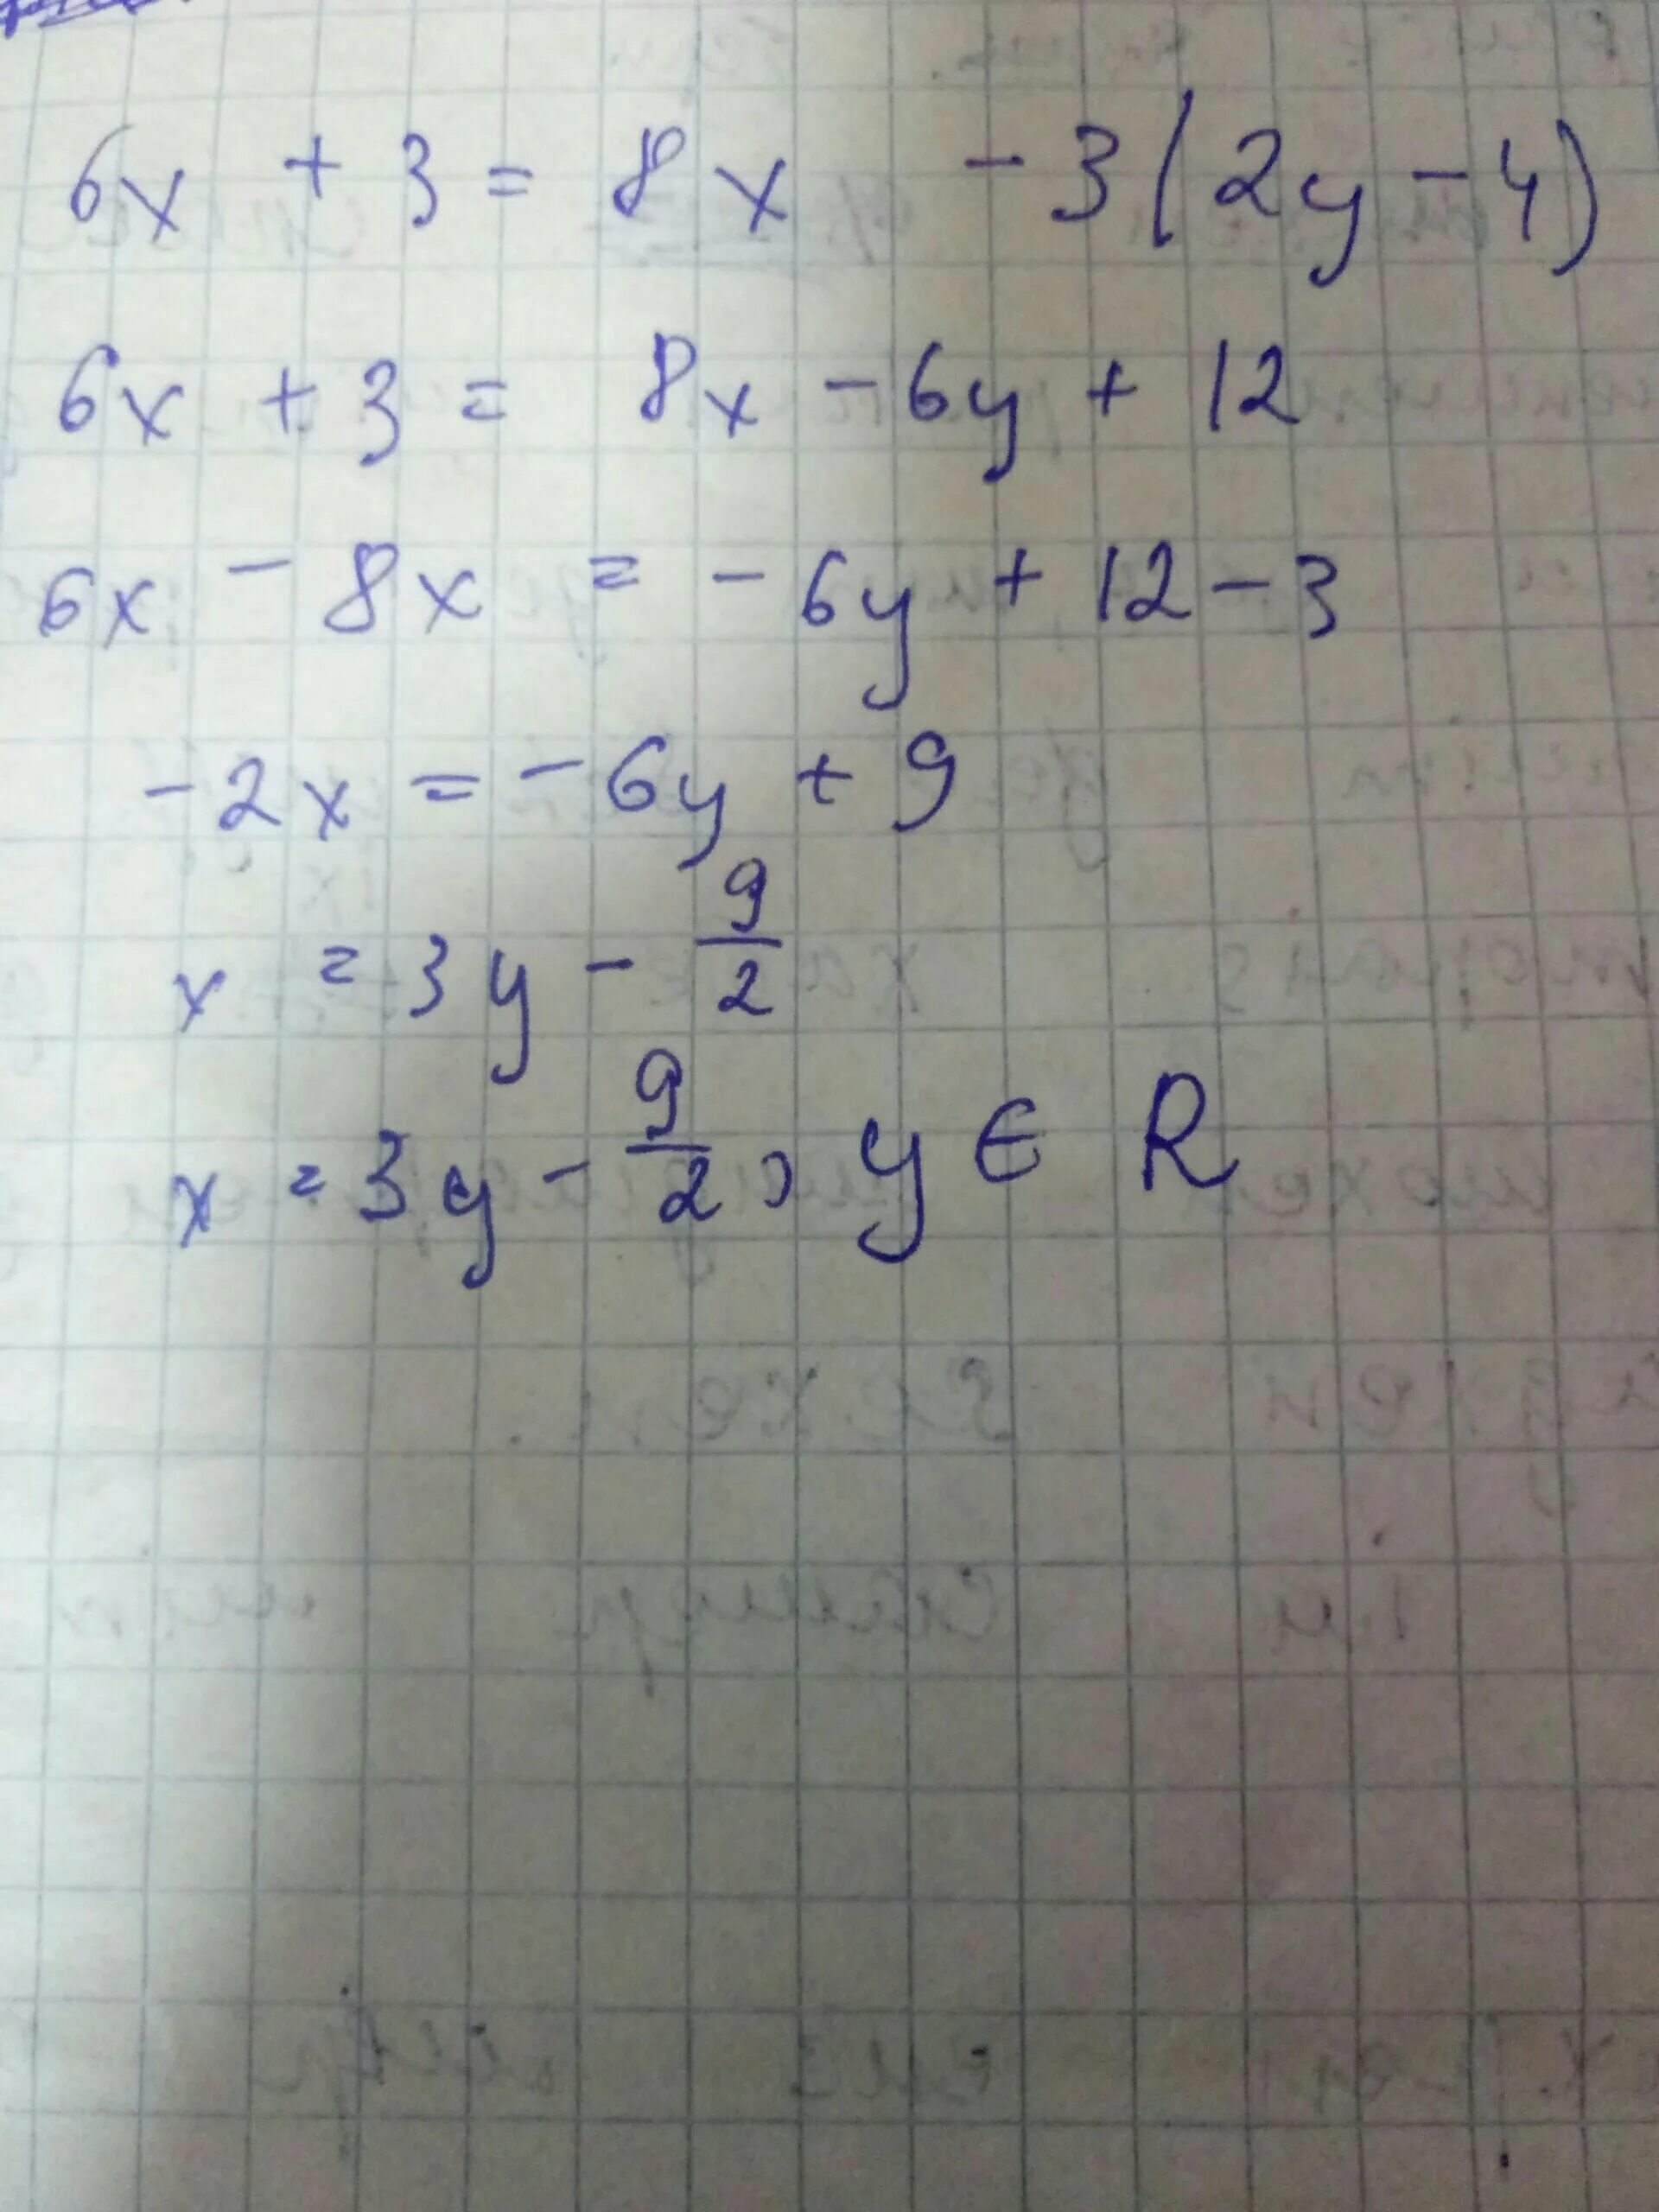 6x + 3 = 8x - 3(2y - 4)
6x + 3 = 8x - 6y + 12
6x - 8x = -6y + 12 - 3
-2x = -6y + 9
x = 3y - 9/2
x = 3y - 9/2, y ∈ R